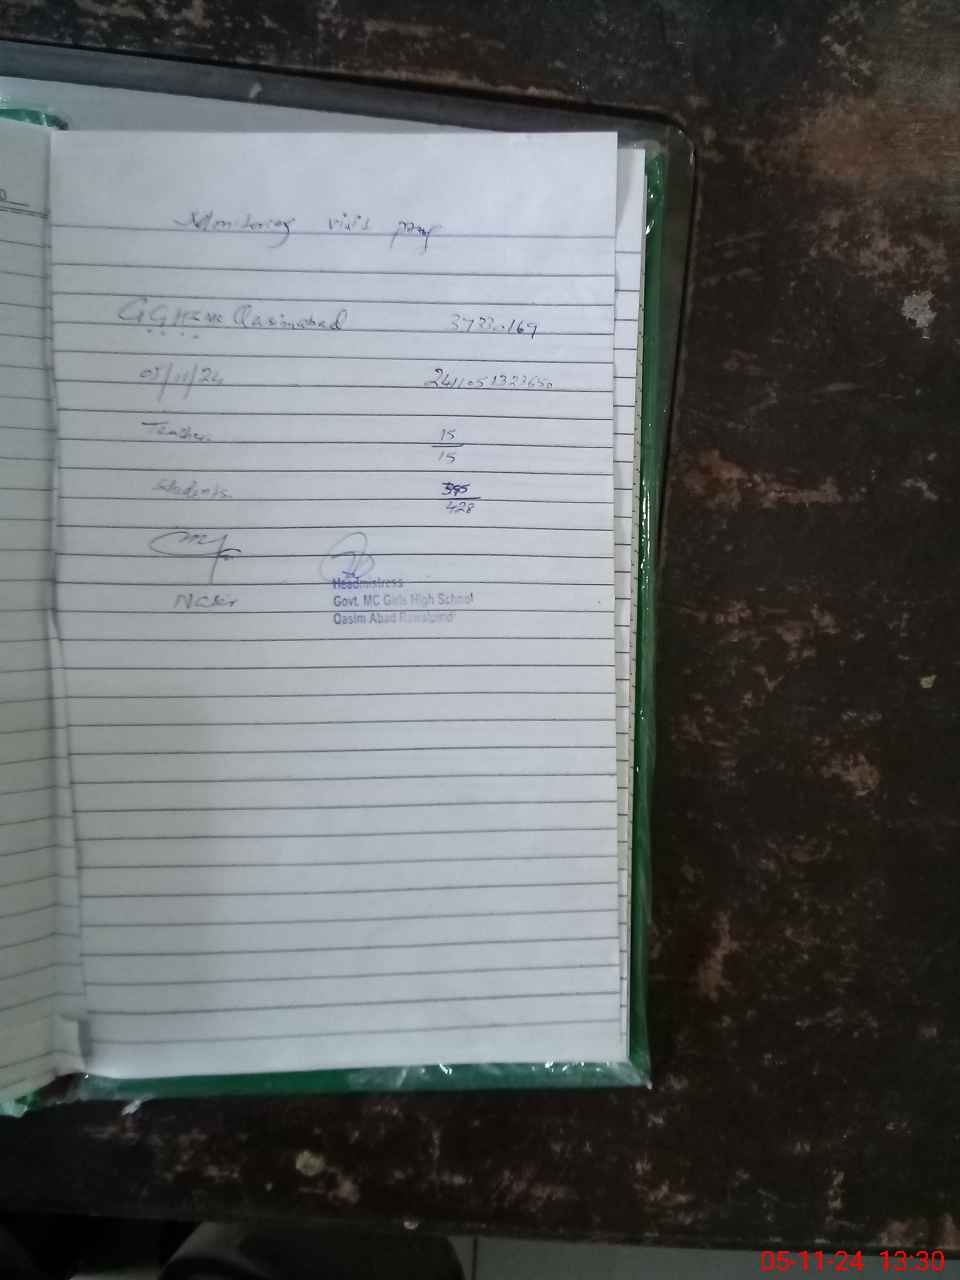 Monitoring visit
GGHS MC Qasimabad 37330169
05/11/24 241105132365
Teacher. 15
15
Students. 395
428
Headmistress
Govt. MC Girls High School
Qasim Abad Rawalpindi
05-11-24 13:30